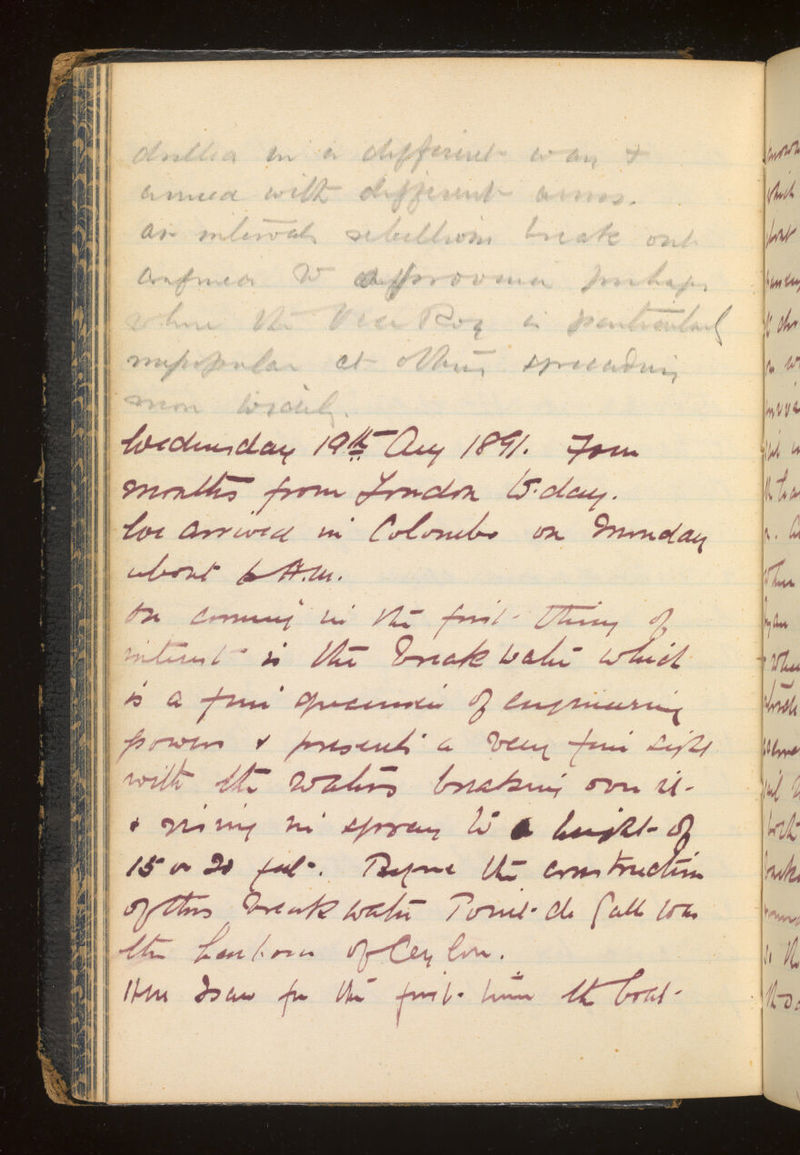 drilled in a different way &
armed with different arms.
at intervals rebellions break out
confined to a province perhaps
where the Vice Roy is particularly
unpopular at others spreading
more widely.
Wednesday 19th Aug 1891. Four
months from London to-day.
We arrived in Colombo on Monday
about 6 A.M.
On coming in the first thing of
interest is the breakwater which
is a fine specimen of engineering
powers & presents a very fine sight
with the waters breaking over it
& rising in spray to a height of
15 or 20 feet. Before the construction
of this breakwater Point de Galle was
the harbour of Ceylon.
Here I saw for the first time the boat